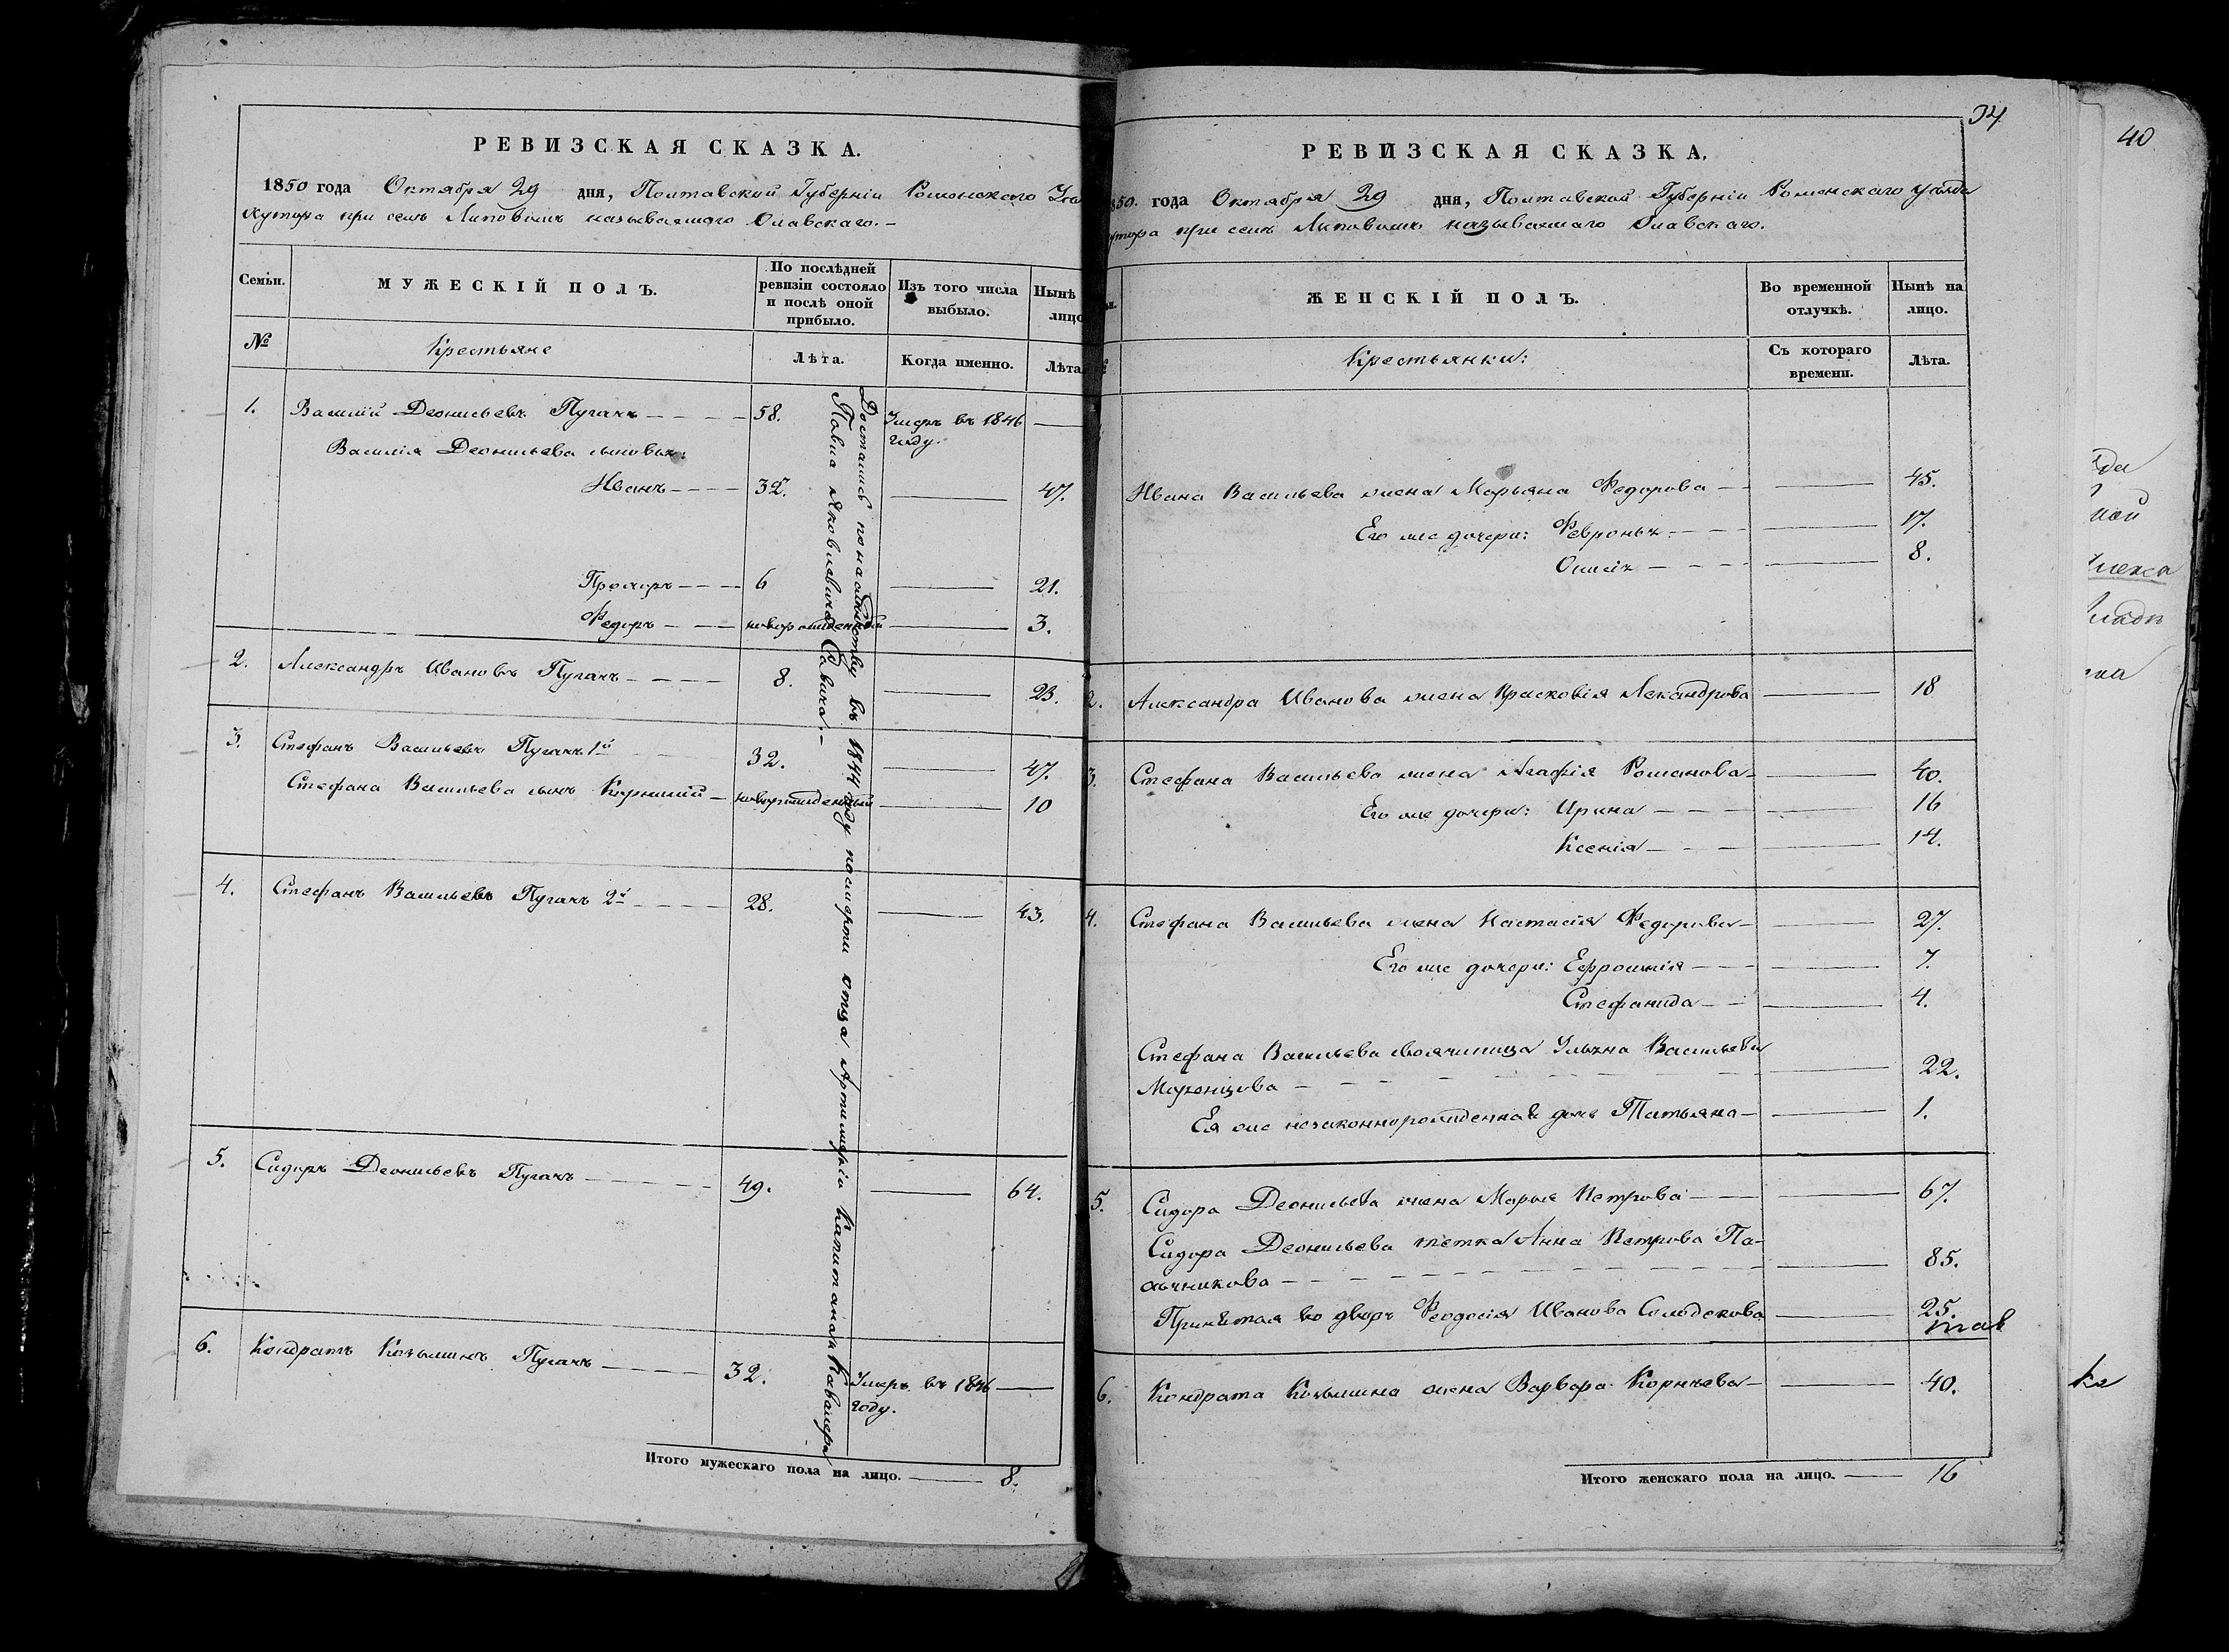 РЕВИЗСКАЯ СКАЗКА.
1850 года Октября 29 дня, Полтавской Губерніи Роменского
Хутора при селѣ Липовомъ называемаго
Семьи.
МУЖЕСКІЙ ПОЛЪ.
По послѣдней ревизіи состояло и послѣ оной прибыло.
Изъ того числа выбыло.
Нынѣ
лицо
№
Крестьяне
Лѣта.
Когда именно.
Лѣта
1. Василій Деонисьевъ Пугачъ 58. Умеръ въ 1846
году.
Василія Деонисьева сыновья:
Иванъ 32. 47.
Прохоръ 6 21.
Федоръ новорожденный 3.
2. Александръ Ивановъ Пугачъ 8. 23.
3. Стефанъ Васильевъ Пугачъ 1й 32. 47.
Стефана Васильева сынъ Корнилій новорожденный 10
4. Стефанъ Васильевъ Пугачъ 2й 28. 43.
5. Сидоръ Деонисьевъ Пугачъ 49. 64.
6. Кондратъ Козьминъ Пугачъ 32. Умеръ въ 1846
году.
Достались по наслѣдству въ 1844 году посмерти отца Артилеріи Капитана и Кавалера
Павла Яковлевича Савича.
Итого мужескаго пола на лицо. 8.
34
РЕВИЗСКАЯ СКАЗКА.
1850. года Октября 29 дня, Полтавской Губерніи Роменскаго уѣзда
хутора при селѣ Липовомъ называемаго
ЖЕНСКІЙ ПОЛЪ.
Во временной отлучкѣ.
Нынѣ на лицо.
Крестьянки:
Съ котораго времени.
Лѣта.
Ивана Васильева жена Марьяна Федорова 45.
Его же дочери: Февронья 17.
8.
2. Александра Иванова жена Прасковія Лександрова 18
3. Стефана Васильева жена Агафія Романова 40.
Его же дочери: Ирина 16
Ксенія 14.
4. Стефана Васильева жена Настасія Федорова 27.
Его же дочери: Ефросинія 7.
Стефанида 4.
Стефана Васильева своячиница Ульяна Васильева
22.
Ея же незаконнорожденная дочь Татьяна 1.
5. Сидора Деонисьева жена Марья Петрова 67.
Сидора Деонисьева тетка Анна Петрова Па-
85.
Принятая во дворъ Феодосія Иванова 25.
6. Кондрата Козьмина жена Варвара Корнѣева 40.
Итого женскаго пола на лицо. 16
40